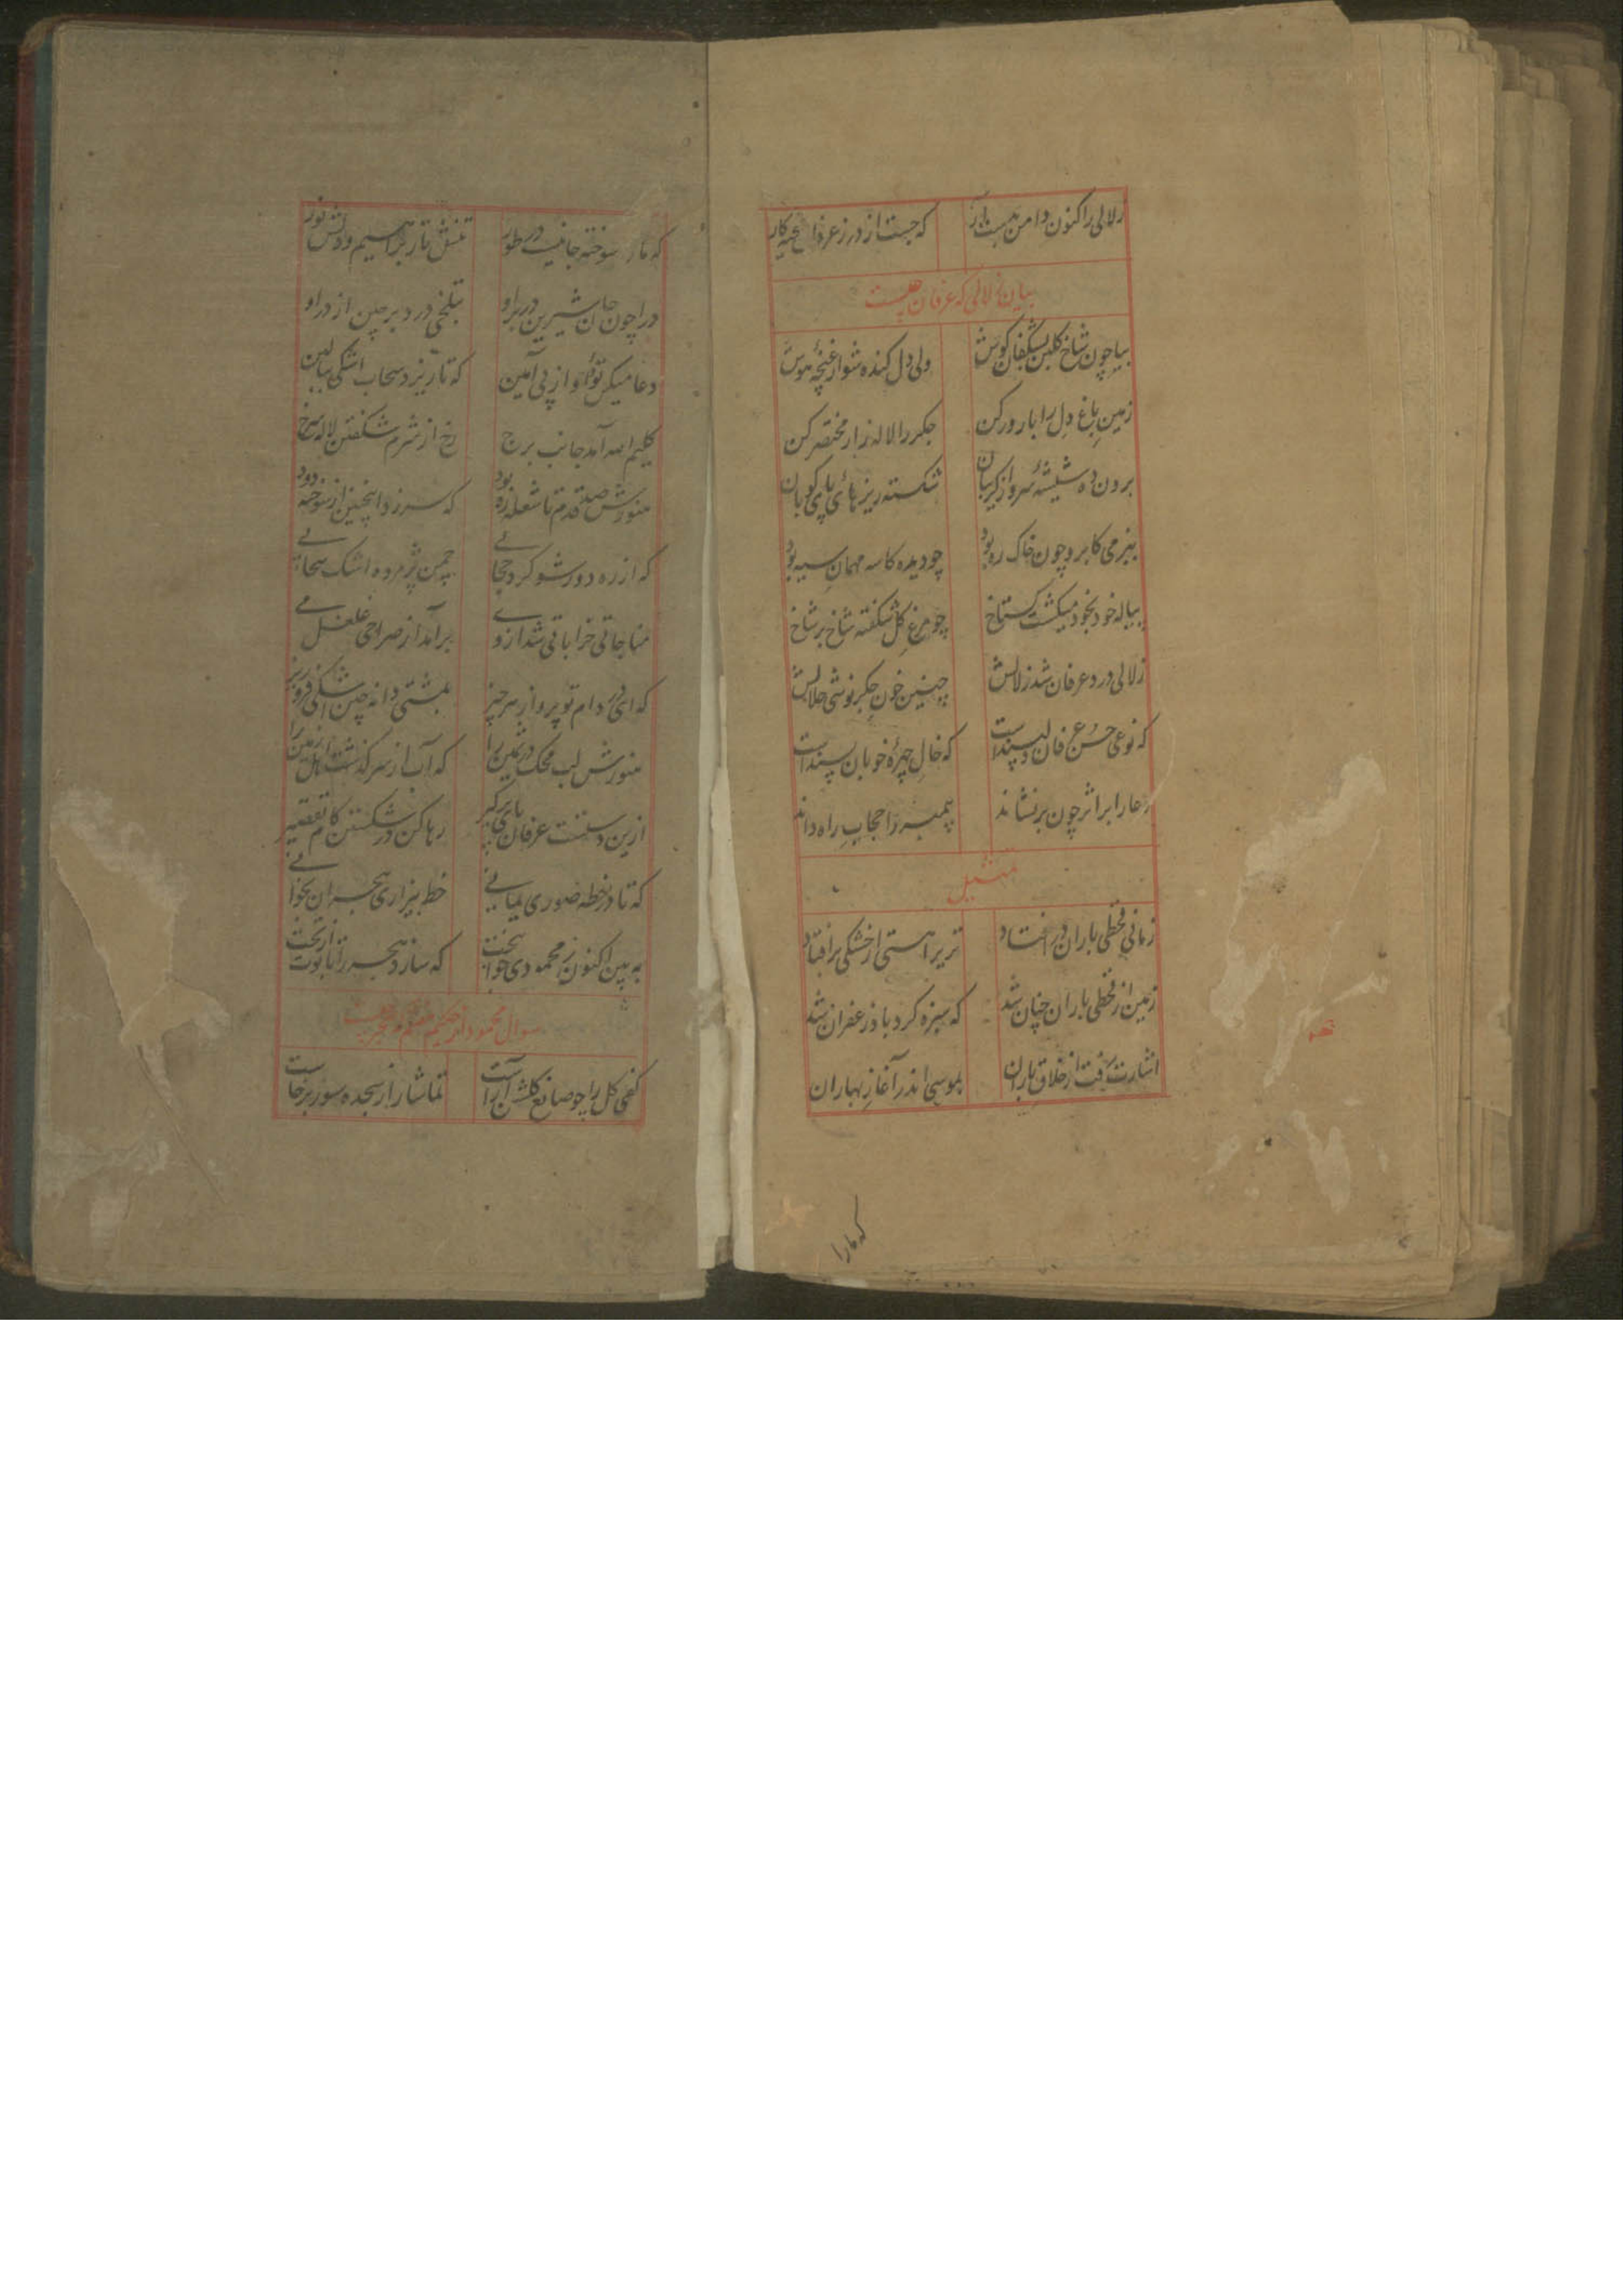 زلالی را کنون دامن بدست آر که جست از درز عرفان بخیه کار
بیان زلالی که عرفان چیست
بیا چون شاخ گلبن بشگفان گوش ولی دل کنده شو از غنچهٔ هوش
زمین باغ دل را بارور کن جگر را لاله زار مختصر کن
برون ده شیشهٔ سر و از گریبان شکسته ریزهای پای کوبان
به بزمی کابرو چون خاک ره بود چو دیده کاسه مهمان سیه بود
پیاله خود بخود میگشت گستاخ چو مرغ گل شکفته شاخ بر شاخ
زلالی درد عرفان شد زلالش چنین خون جگر نوشی حلالش
که نوعی حسن عرفان دلپسند است که خال چهرهٔ خوبان سپند است
دعا را بر اثر چون برنشاند پیمبر را حجاب راه داند
تمثیل
زمانی قحطی باران در افتاد تریرا هستی از خشکی بر افتاد
زمین از قحطی باران چنان شد که سبزه کرد باد زعفران شد
اشارت رفت از خلاق باران بموسی اندر آغاز بهاران
که مارا
که مارا سوخته جانیست در طور تنش نار براهیم و دلش نور
درا چون جان شیرین در بر او بتلخی درد برچین از در او
دعا میکن تو او از پی آمین که تا ریزد سحاب اشکی ببالین
کلیم الله آمد جانب برخ رخ از شرم شکفتن لاله سرخ
هنوزش صد قدم تا شعله زه بود که سر زد اینچنین از سوخته دود
که از ره دور شو گر در حجابی چمن پژمرده اشک سحابی
مناجاتی خراباتی شد از وی برآمد از صراحی غلغل می
که ای در دام تو پرواز هر چیز بمشتی دانه چین اشکی فرو ریز
هنوزش لب محک در ثمین را که آب از سر گذشت اهل زمین را
ازین دستت عرفان پای برگیر رها کن در شکستن کام تقصیر
که تا در خطه صوری بمانی خط بیزاری هجران بخوانی
به بین اکنون ز محمودی جوانبخت که سازد هجر را تابوت از تخت
سوال محمود از حکیم
کفی گل را چو صانع گلشن آراست تماشا را ز سجده سور برخاست